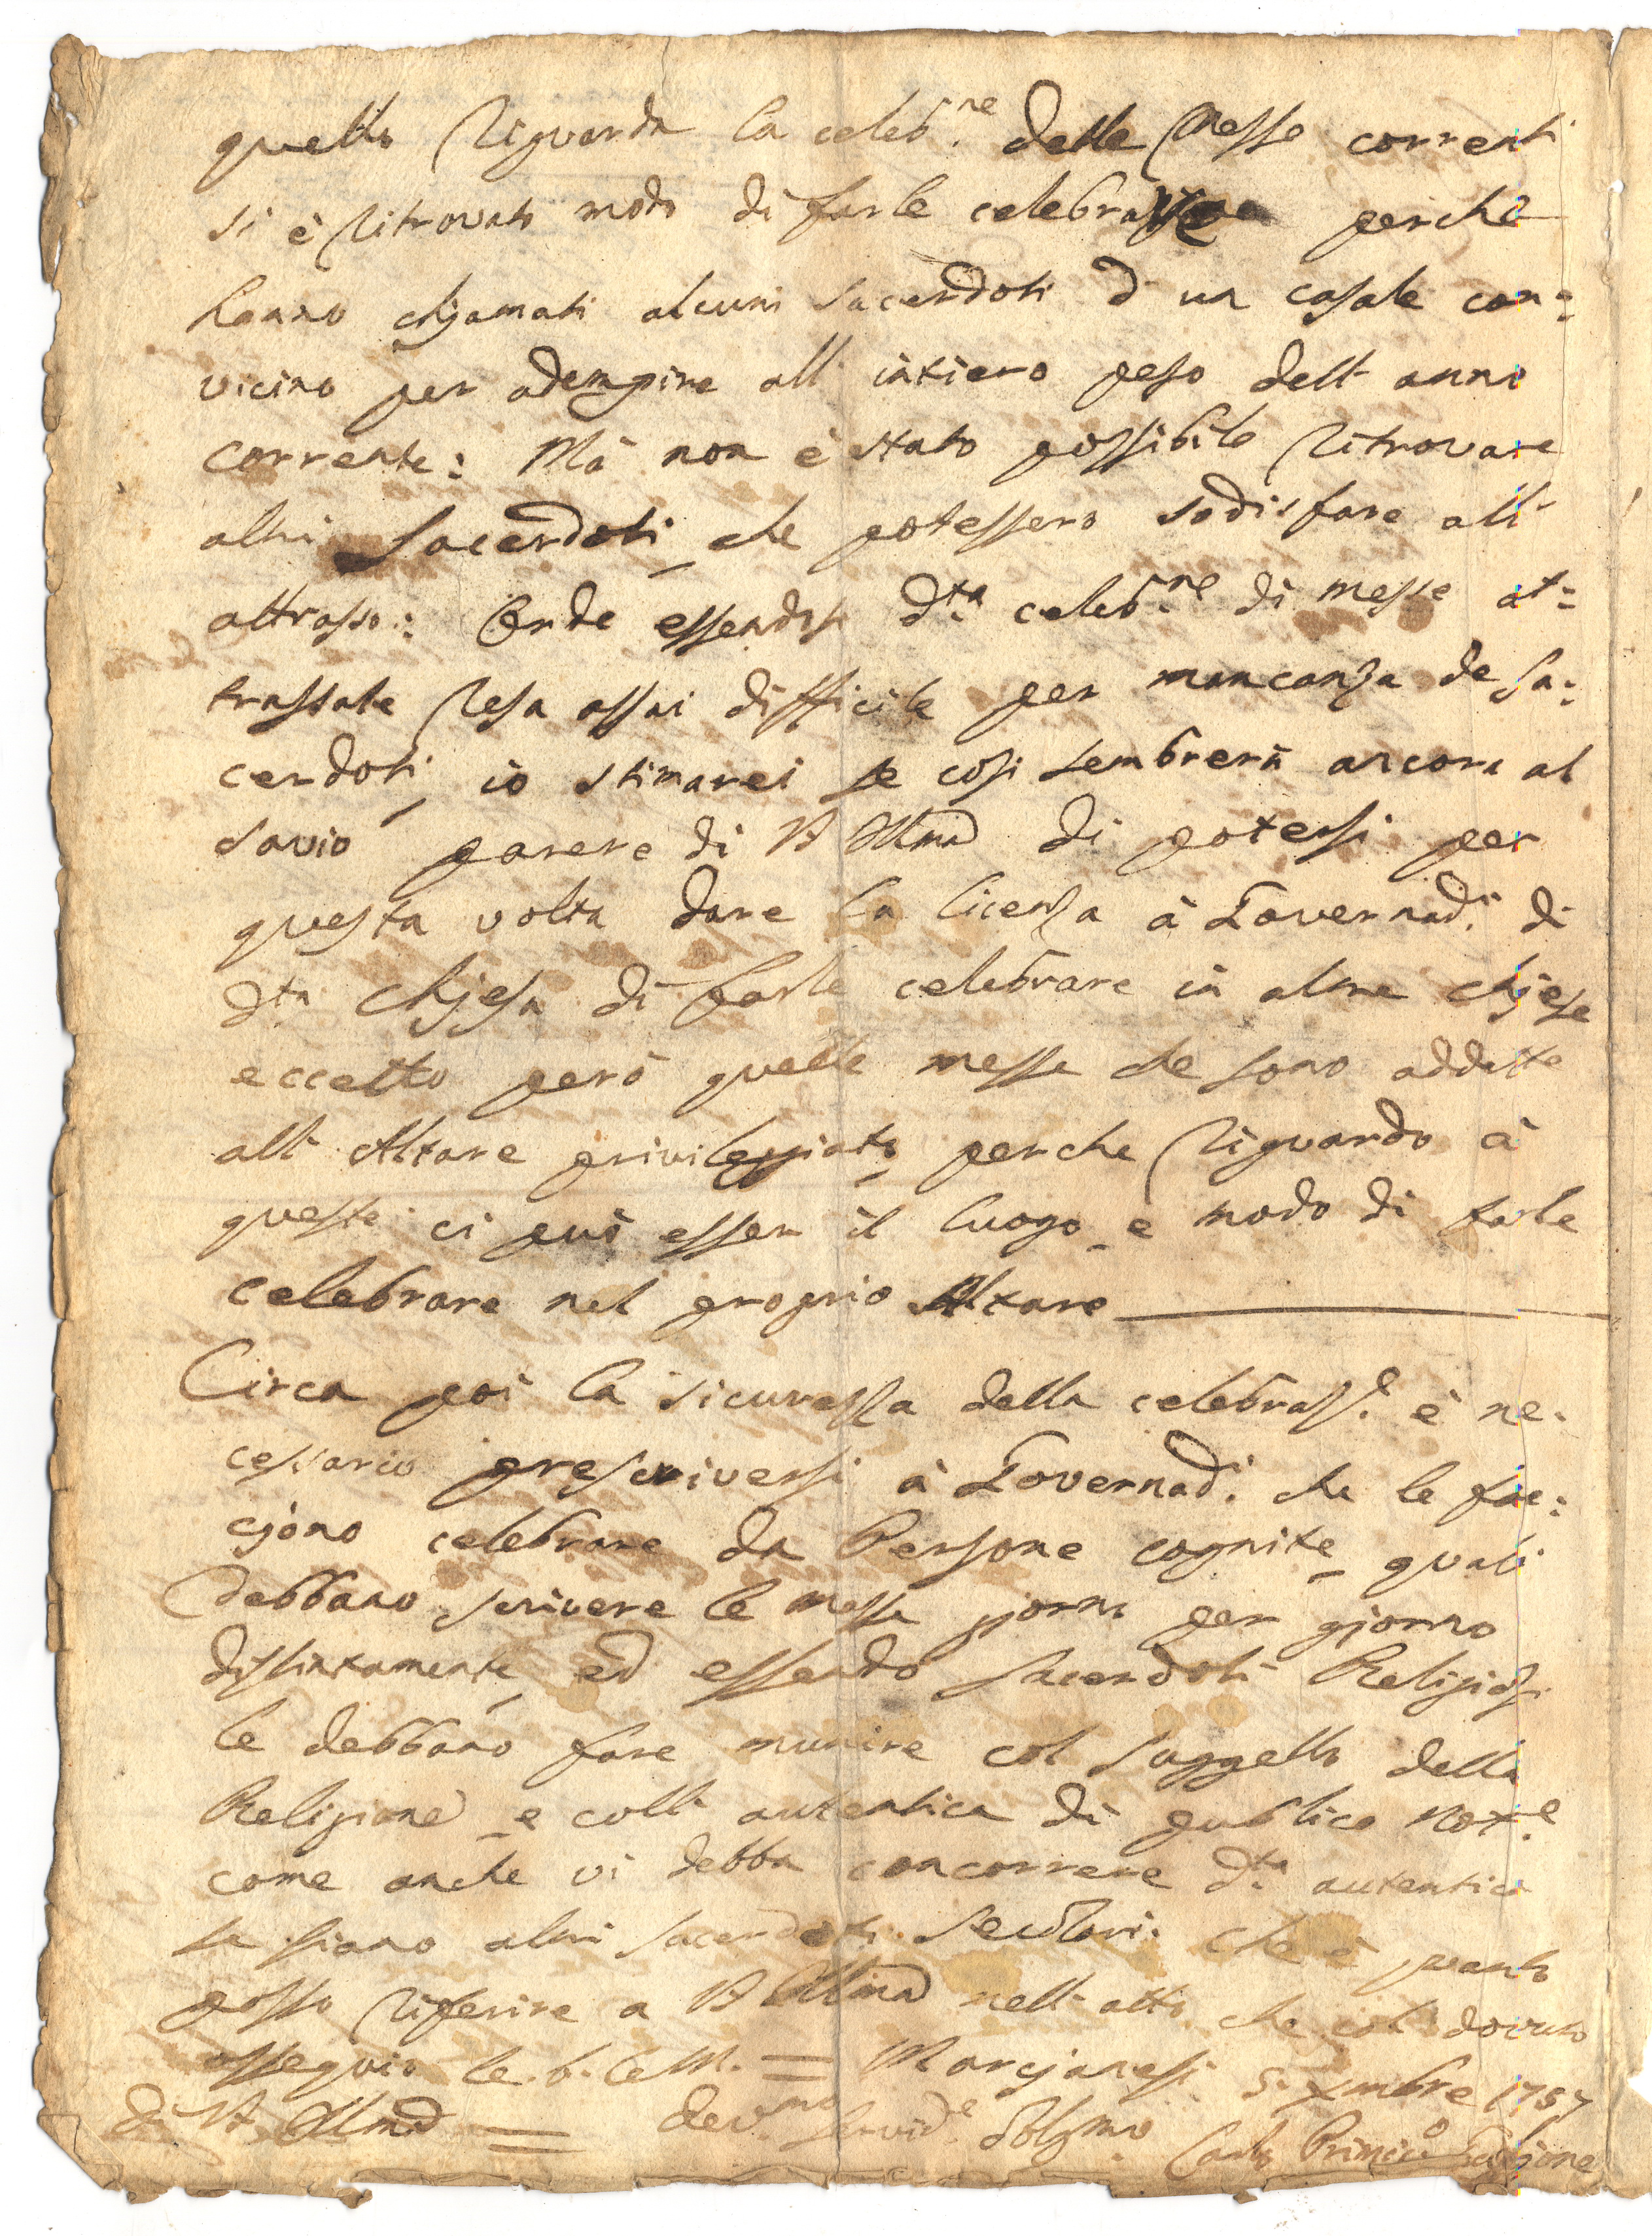 quello riguarda la celeb.ne delle Messe correnti
si è ritrovato modo di farle celebrare perche
hanno chjamati alcuni Sacerdoti d' un casale con=
vicino per adempire all' intiero peso dell' anno
corrente: Mà non è stato possibile ritrovare
altri Sacerdoti che potessero sodisfare all'
attrasso: Onde essendosi d.ta celeb.ne di messe at=
trassate resa assai difficile per mancanza de Sa:
cerdoti, io stimarei se così sembrerà ancora al
savio parere di VS Illma di potersi per
questa volta dare la licenza à Governad.i di
d.ta Chjesa di farle celebrare in altre chjese
eccetto però quelle messe che sono addette
all' Altare privileggiato, perche riguardo à
queste ci può esser il luogo e modo di farle
celebrare nel proprio Altare
Circa poi la sicurezza della celebraz.e è ne:
cessario prescriversi à Governad.i che le fac:
cjano celebrare da Persone cognite quali
debbano scrivere le messe giorno per gjorno
distintamente, ed essendo Sacerdoti Religiosi
le debbano fare munire col suggello della
Religione e coll' autentica di publico Not.e
come anche vi debba concorrere d.ta autentica
se siano altri Sacerdoti Secolari. Che è quanto
posso riferire a VS Illma nell' atto che col dovuto
ossequio le b. le M. = Marcjanesi 5. Xmbre 1757
Di VS Illma = dev.mo servid.e Oblg.mo Carlo Primic.o